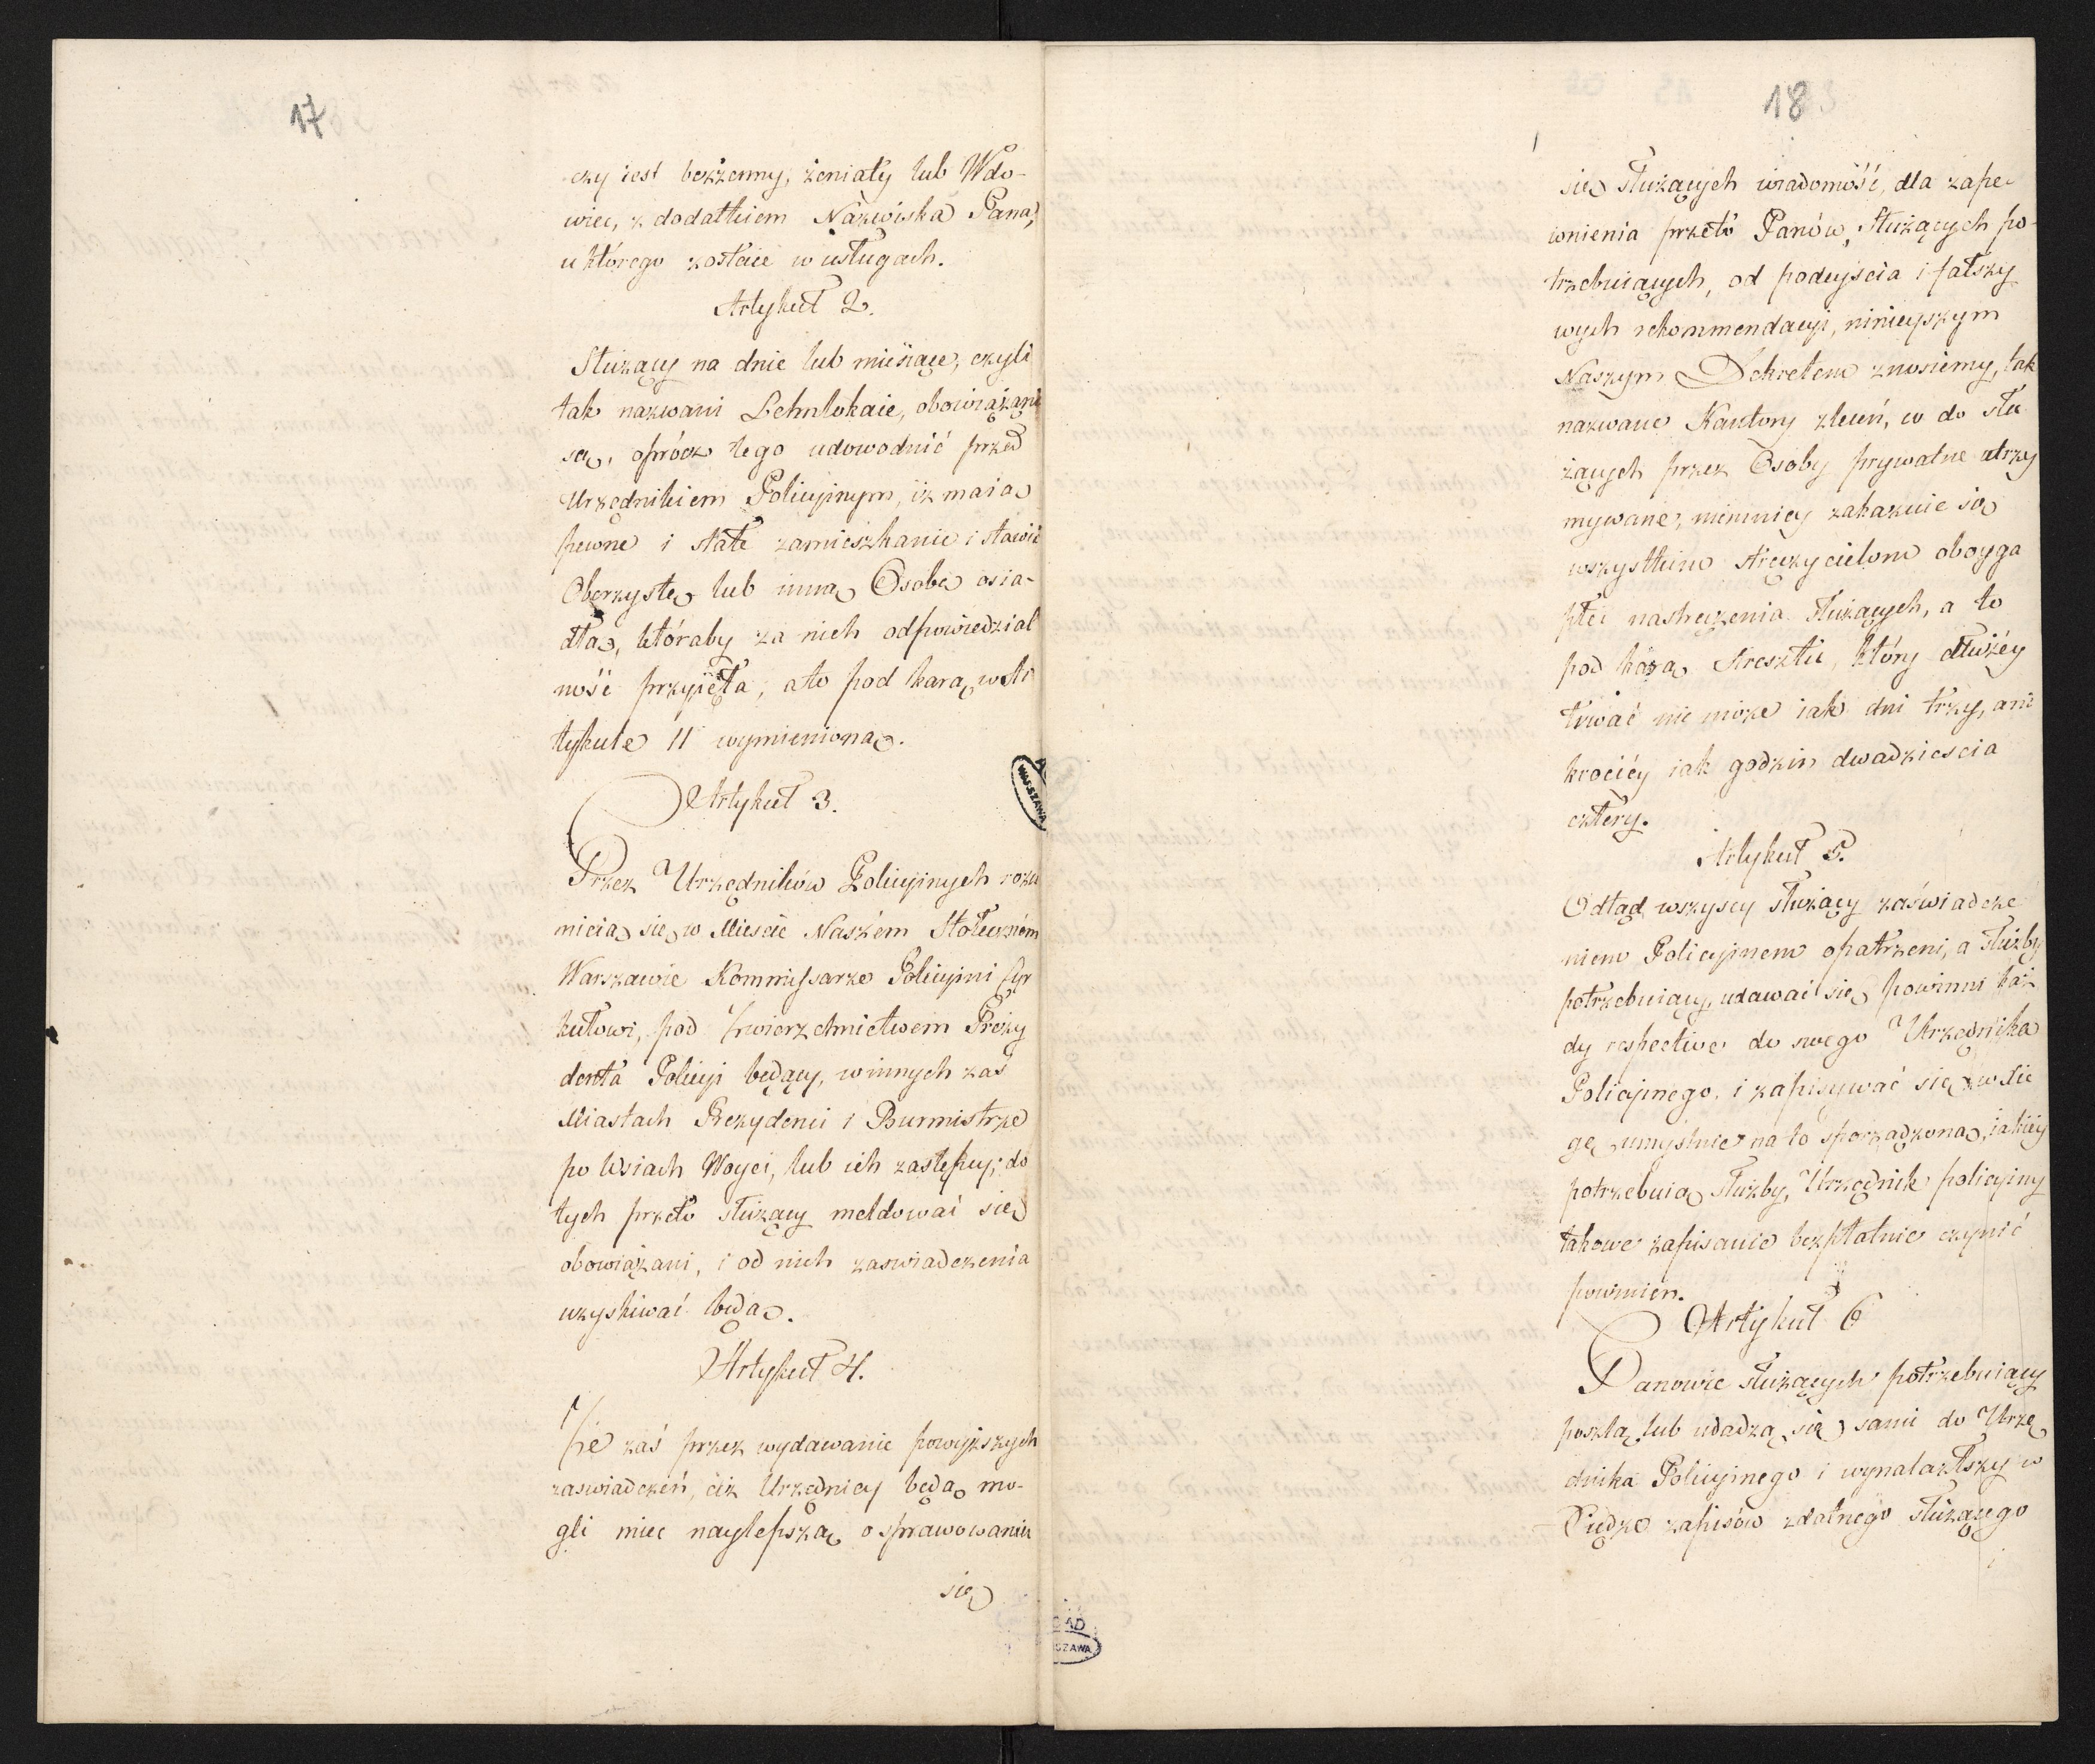 17
czy iest bezżenny, żeniały lub Wdo-
wiec, z dodatkiem Nazwiska Pana,
u którego zostaie w usługach.
Artykuł 2.
Służący na dnie lub miesiące, czyli
tak nazwani Lehnlokaie, obowiązani
są, oprócz tego udowodnić przed
Urzędnikiem Policyinym, iż maią
pewne i stałe zamieszkanie i stawić
Oberzystę lub inną Osobę osia-
dłą, któraby za nich odpowiedzial
ność przyięła, a to pod karą w Ar
tykule 11 wymienioną.
Artykuł 3.
Przez Urzędników Policyinych rozu
mieią się w Mieście Naszém Stołeczném
Warszawie Kommissarze Policyini Cyr
kułowi, pod zwierzchnictwem Prezy
denta Policyi będący, w innych zaś
Miastach Prezydenci i Burmistrze
po Wsiach Woyci, lub ich zastępcy; do
tych przeto służący meldować się
obowiązani, i od nich zaswiadczenia
uzyskiwać będą.
Artykuł 4.
Że zaś przez wydawanie powyższych
zaswiadczeń, ciż Urzędnicy będą mo-
gli mieć naylepszą o sprawowaniu
się
WARSZAWA
18
się służących wiadomość, dla zape-
wnienia przeto Panów, służących po-
trzebuiących, od podeyścia i fałszy
wych rekommendacyi, ninieyszym
Naszym Dekretem znosiemy, tak
nazwane Kantory zleceń, co do słu
żących przez Osoby prywatne utrzy
mywane, niemniey zakazuie się
wszystkim stręczycielom oboyga
płci nastręczenia służących, a to
pod karą Aresztu, który dłużéy
trwać nie może iak dni trzy, ani
krociéy iak godzin dwadzieścia
cztery.
Artykuł 5.
Odtąd wszyscy służący zaświadcze
niem Policyinem opatrzeni, a służby
potrzebuiący, udawać się powinni każ
dy respective do swego Urzędnika
Policyinego, i zapisywać się w Xię
gę umyślnie na to sporządzoną, iakiéy
potrzebuią służby, Urzędnik policyiny
takowe zapisanie bezpłatnie czynić
powinien.
Artykuł 6
Panowie służących potrzebuiący
poszlą lub udadzą się sami do Urzę
dnika Policyinego i wynalazłszy w
Xiędze zapisów zdatnego służącego
AGAD
WARSZAWA